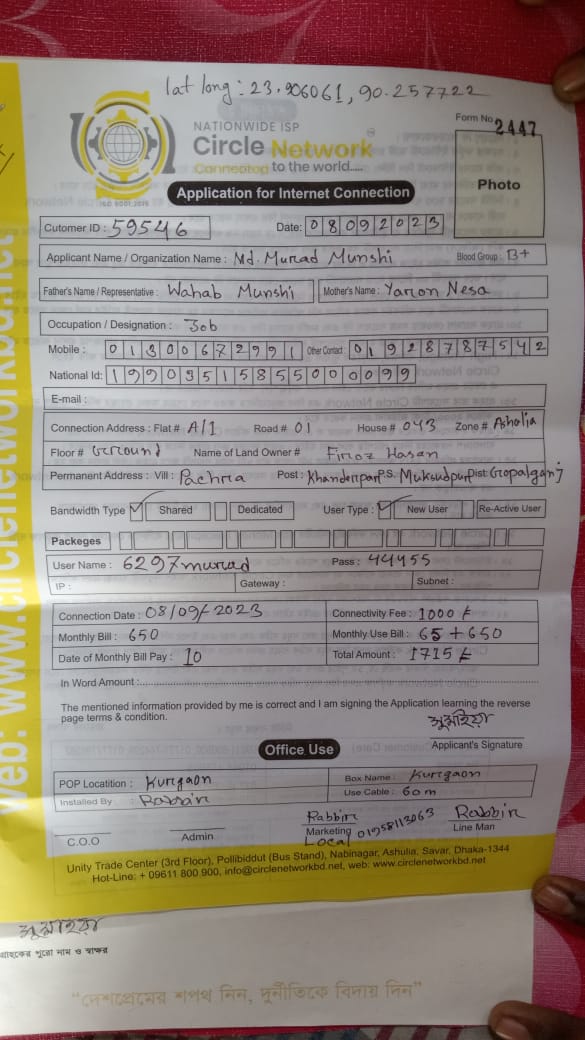 lat long: 23.906061, 90.257722
NATIONWIDE ISP
Circle Network
Connecting to the world.....
ISO 9001:2015
Form No. 2447
Photo
Application for Internet Connection
Cutomer ID : 59546 Date: 08092023
Applicant Name / Organization Name : Md. Murad Munshi Blood Group : B+
Father's Name / Representative : Wahab Munshi Mother's Name : Yaron Nesa
Occupation / Designation : Job
Mobile : 01300672991 Other Contact 01928787542
National Id: 19903515855000099
E-mail :
Connection Address : Flat # A/1 Road # 01 House # 043 Zone # Asholia
Floor # Ground Name of Land Owner # Firoz Hasan
Permanent Address : Vill : Pachra Post : Khanderpar P.S. Muksudpur Dist: Gopalganj
Bandwidth Type Shared Dedicated User Type : New User Re-Active User
Packeges
User Name : 6297murad Pass : 44455
IP : Gateway : Subnet :
Connection Date : 08/09/2023 Connectivity Fee : 1000 ৳
Monthly Bill : 650 Monthly Use Bill : 65 + 650
Date of Monthly Bill Pay : 10 Total Amount : 1715 ৳
In Word Amount :
The mentioned information provided by me is correct and I am signing the Application learning the reverse
page terms & condition.
সুমাইয়া
Applicant's Signature
Office Use
POP Locatition : Kurgaon Box Name : Kurgaon
Installed By : Rabbin Use Cable : 60m
Rabbin 01958113063 Rabbin
C.O.O Admin Marketing Line Man
Local
Unity Trade Center (3rd Floor), Pollibiddut (Bus Stand), Nabinagar, Ashulia, Savar, Dhaka-1344
Hot-Line: + 09611 800 900, info@circlenetworkbd.net, web: www.circlenetworkbd.net
web: www.circlenetworkbd.net
সুমাইয়া
গ্রাহকের পুরো নাম ও স্বাক্ষর
“দেশপ্রেমের শপথ নিন, দুর্নীতিকে বিদায় দিন”